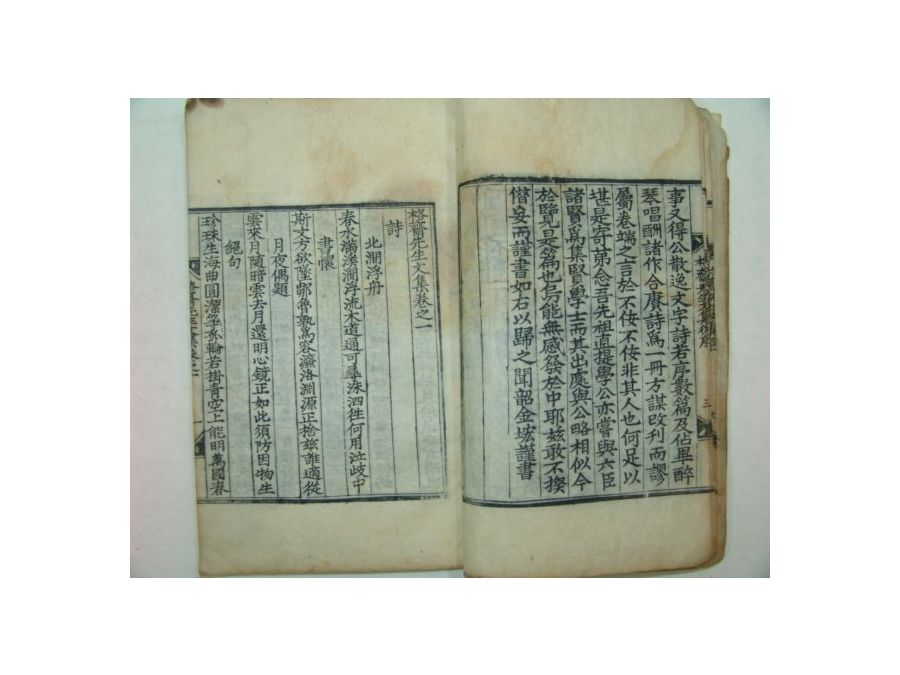 事又得公散逸文字詩若序數篇及佔畢醉
琴唱酬諸作合賡詩爲一冊方謀改刋而謬
屬卷端之言於不佞不佞非其人也何足以
堪是寄苐念吾先祖直提學公亦嘗與六臣
諸賢爲集賢學士而其出處與公略相似今
於覽是篇也烏能無感發於中耶玆敢不揆
僭妄而謹書如右以歸之聞韶金㙆謹書
格齋先生文集卷之一
詩
北澗浮舟
春水滿溪澗浮流木道通可尋洙泗徃何用泣歧中
書懷
斯文方欲墜鄒魯孰爲容濂洛淵源正捨玆誰適從
月夜偶題
雲來月隨暗雲去月還明心鏡正如此須防因物生
絕句
珍珠生海曲圓潔孤輪若掛青空上能明萬國春
三